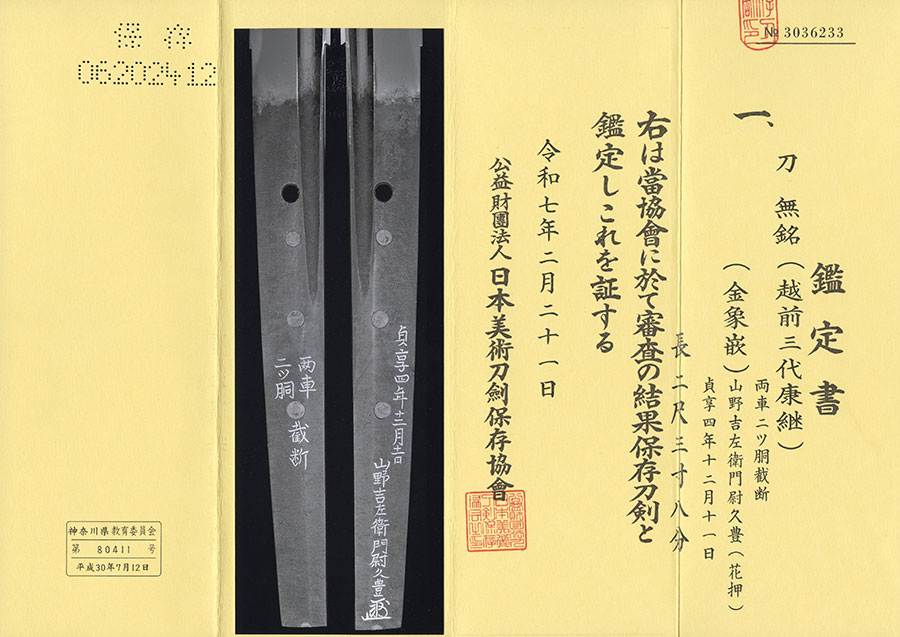 № 3036233
鑑定書
一、
刀 無銘(越前三代康継)
(金象嵌)
両車 二ツ胴截断
山野吉左衛門尉久豊(花押)
貞享四年十二月十一日
長 二尺三寸八分
右は當協會に於て審査の結果保存刀剣と
鑑定しこれを証する
令和七年二月二十一日
公益財團法人 日本美術刀劍保存協會
貞享四年十二月十一日
山野吉左衛門尉久豊
両車
二ツ胴
截断
保存
06202412
神奈川県教育委員会
第 80411 号
平成30年7月12日